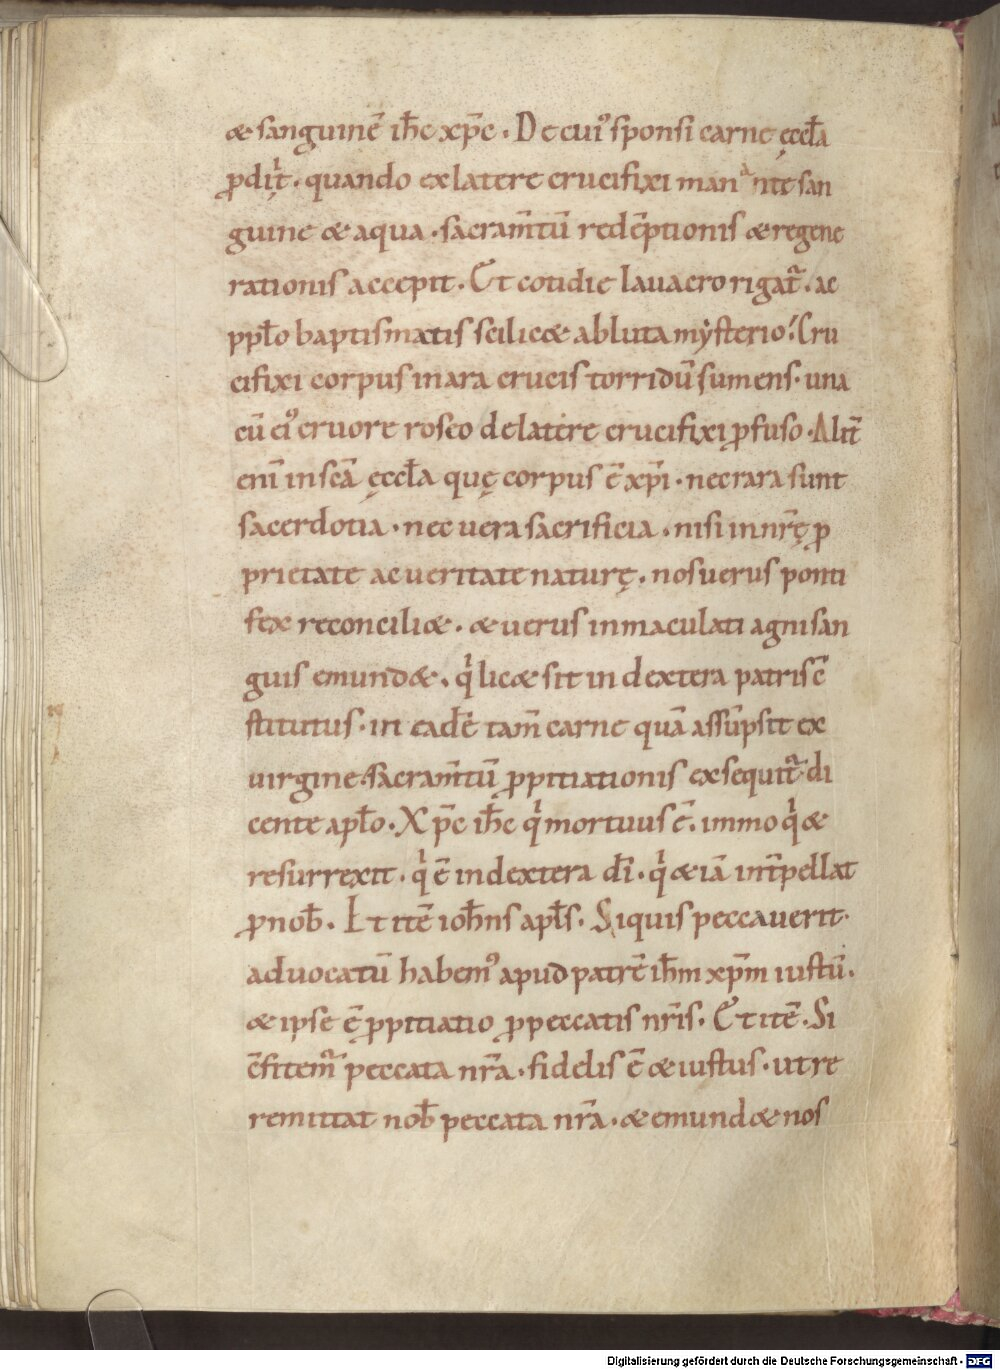 & sanguinē ih̄c xp̄c . De cui᾽ sponsi carne ęccła
ꝓdiįt . quando exlatere crucifixi manante san
guine & aqua . sacram̄tū redēptionis & regene
rationis accepit . Et cotidie lauacro rigat᷑ . ac
pp̱ło baptismatis scilic& abluta mẏsterio ; Cru
cifixi corpus inara crucis torridū sumens . una
cū ei᾽ cruore roseo delatere crucifixi ꝓfuso . Alit̄
eni᷑ inscā ęccła quę corpus ē xp̄i . nec rara sunt
sacerdotia . nec uera sacrificia . nisi innr̄ę ꝓ
prietate ac ueritate naturę . nos uerus ponti
fex reconcili& . & uerus inmaculati agni san
guis emund& . qͥ lic& sit in dextera patris c̄
stitutus . in eadē tam̄ carne quā assūpsit ex
uirgine . sacram̄tū ꝓpitiationis exsequit᷑ . di
cente apło . Xp̄c ih̄c qͥ mortuus ē . immo qͥ &
resurrexit . qͥ ē indextera dī . qͥ & iā int̄pellat
ꝓ nob̄ . Et itē ioh̄ns apłs . Siquis peccauerit .
aduocatū habem᾽ apud patrē ih̄m xp̄m iustū .
& ipse ē ꝓpitiatio ꝓ peccatis nr̄is . Et itē . Si
c̄fitem᷑ peccata nr̄a . fidelis ē & iustus . ut re
remittat nob̄ peccata nr̄a . & emund& nos
Digitalisierung gefördert durch die Deutsche Forschungsgemeinschaft - DFG